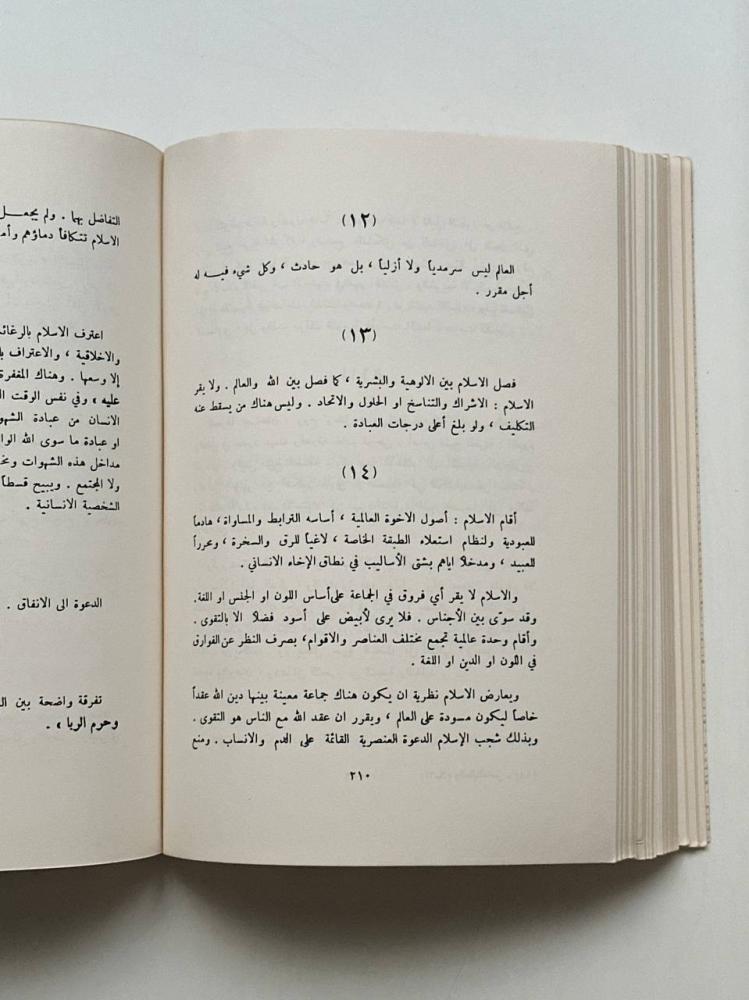 (١٢)
العالم ليس سرمدياً ولا أزلياً ، بل هو حادث ، وكل شيء فيه له
أجل مقرر .
(١٣)
فصل الاسلام بين الالوهية والبشرية ، كما فصل بين الله والعالم . ولا يقر
الاسلام : الاشراك والتناسخ او الحلول والاتحاد . وليس هناك من يسقط عنه
التكليف ، ولو بلغ أعلى درجات العبادة .
(١٤)
أقام الاسلام : أصول الاخوة العالمية ، أساسه الترابط والمساواة ، هادماً
للعبودية ولنظام استعلاء الطبقة الخاصة ، لاغياً للرق والسخرة ، ومحرراً
للعبيد ، ومدخلاً اياهم بشتى الأساليب في نطاق الإخاء الانساني .
والاسلام لا يقر أي فروق في الجماعة على أساس اللون او الجنس او اللغة .
وقد سوّى بين الأجناس . فلا يرى لأبيض على أسود فضلاً الا بالتقوى .
وأقام وحدة عالمية تجمع مختلف العناصر والاقوام ، بصرف النظر عن الفوارق
في اللون او الدين او اللغة .
ويعارض الاسلام نظرية ان يكون هناك جماعة معينة بينها دين الله عقداً
خاصاً ليكون مسودة على العالم ، ويقرر ان عقد الله مع الناس هو التقوى .
وبذلك شجب الإسلام الدعوة العنصرية القائمة على الدم والانساب . ومنع
٢١٠
التفاضل بها . ولم يجعل
الاسلام تتكافأ دماؤهم
اعترف الاسلام
والاخلاقية ، والاعتراف
إلا وسعها . وهناك المغفرة
عليه ، وفي نفس الوقت
الانسان من عبادة
او عبادة ما سوى الله
مداخل هذه الشهوات
ولا المجتمع . ويبيح قسطاً
الشخصية الانسانية .
الدعوة الى الانفاق .
تفرقة واضحة بين
وحرم الربا » .